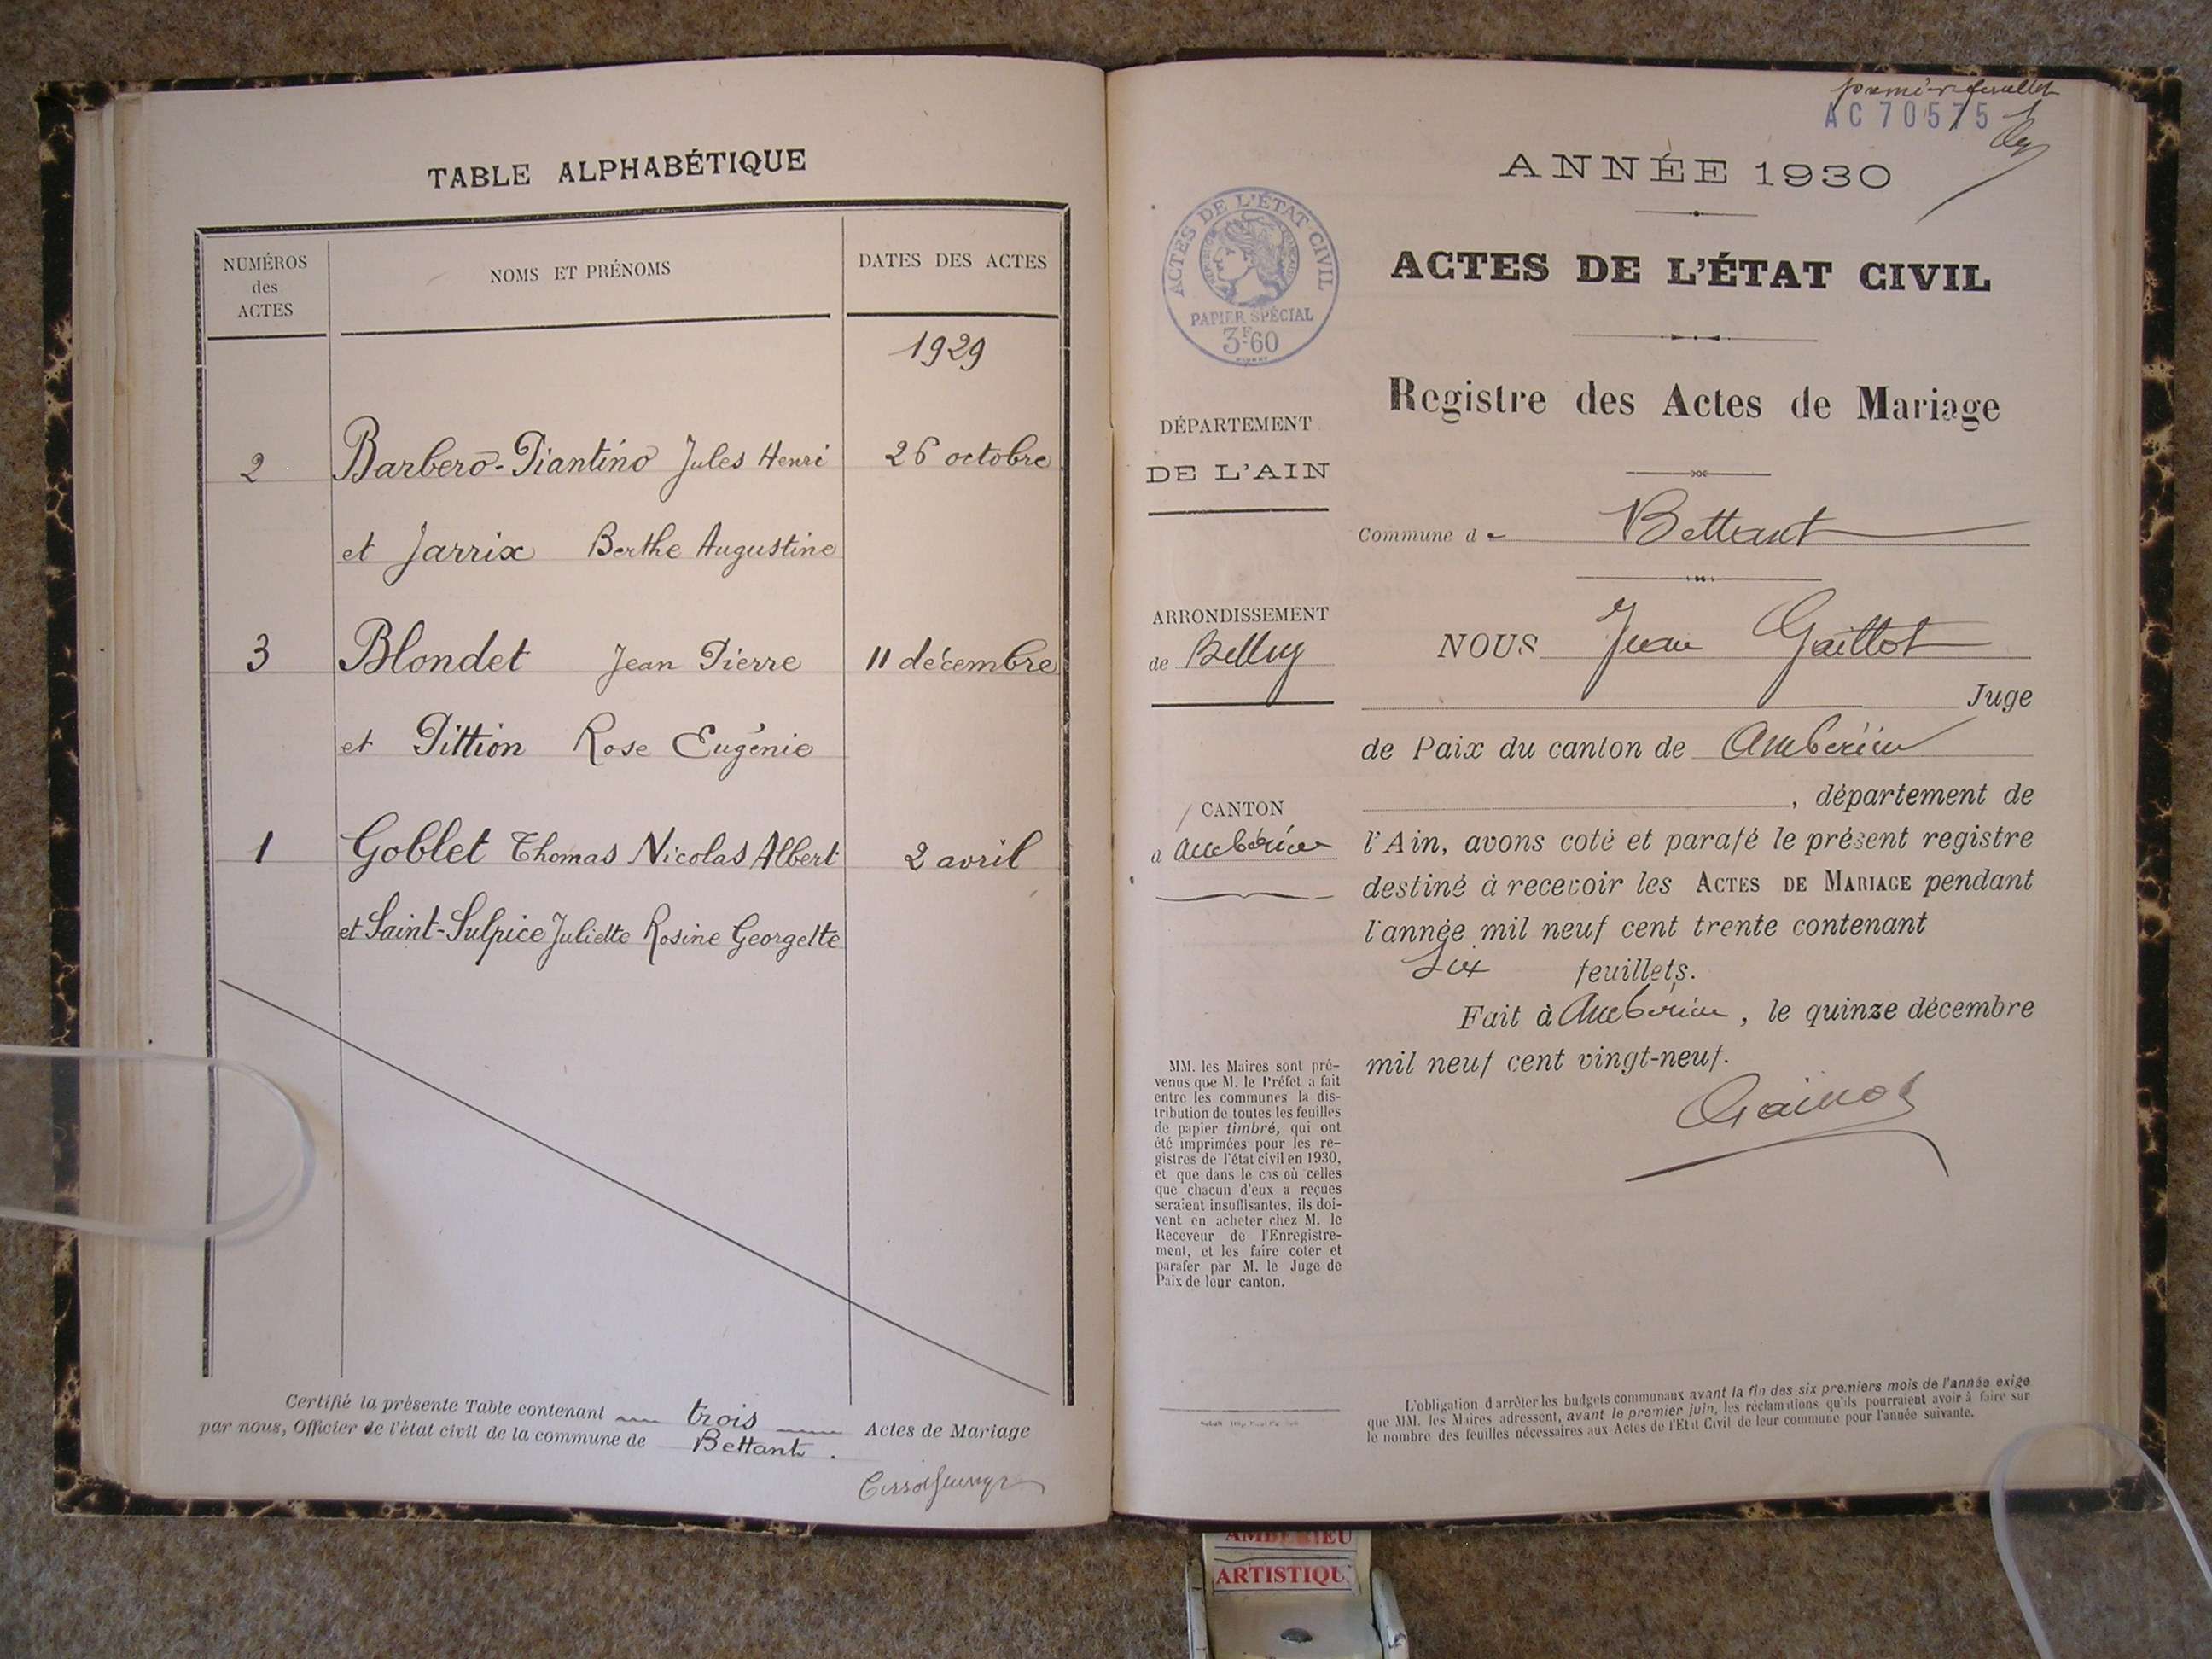 TABLE ALPHABÉTIQUE
NUMÉROS des ACTES
NOMS ET PRÉNOMS
DATES DES ACTES
1929
2 Barbero-Piantino Jules Henri 26 octobre
et Jarrix Berthe Augustine
3 Blondet Jean Pierre 11 décembre
et Pittion Rose Eugénie
1 Goblet Thomas Nicolas Albert 2 avril
et Saint-Sulpice Juliette Rosine Georgette
Certifié la présente Table contenant trois Actes de Mariage
par nous, Officier de l'état civil de la commune de Bettant.
AC 70575
ANNÉE 1930
ACTES DE L'ÉTAT CIVIL
PAPIER SPÉCIAL
3F60
ACTES DE L'ÉTAT CIVIL
Registre des Actes de Mariage
DÉPARTEMENT
DE L'AIN
Commune de Bettant
ARRONDISSEMENT
de Belley
NOUS Jean Gaillot
Juge
de Paix du canton de Ambérieu
, département de
CANTON
d Ambérieu
l'Ain, avons coté et parafé le présent registre
destiné à recevoir les ACTES DE MARIAGE pendant
l'année mil neuf cent trente contenant
Six feuillets.
Fait à Ambérieu, le quinze décembre
mil neuf cent vingt-neuf.
MM. les Maires sont pré-
venus que M. le Préfet a fait
entre les communes la dis-
tribution de toutes les feuilles
de papier timbré, qui ont
été imprimées pour les re-
gistres de l'état civil en 1930,
et que dans le cas où celles
que chacun d'eux a reçues
seraient insuffisantes, ils doi-
vent en acheter chez M. le
Receveur de l'Enregistre-
ment, et les faire coter et
parafer par M. le Juge de
Paix de leur canton.
L'obligation d'arrêter les budgets communaux avant la fin des six premiers mois de l'année exige
que MM. les Maires adressent, avant le premier juin, les réclamations qu'ils pourraient avoir à faire sur
le nombre des feuilles nécessaires aux Actes de l'Etat Civil de leur commune pour l'année suivante.
AMBERIEU
ARTISTIQU